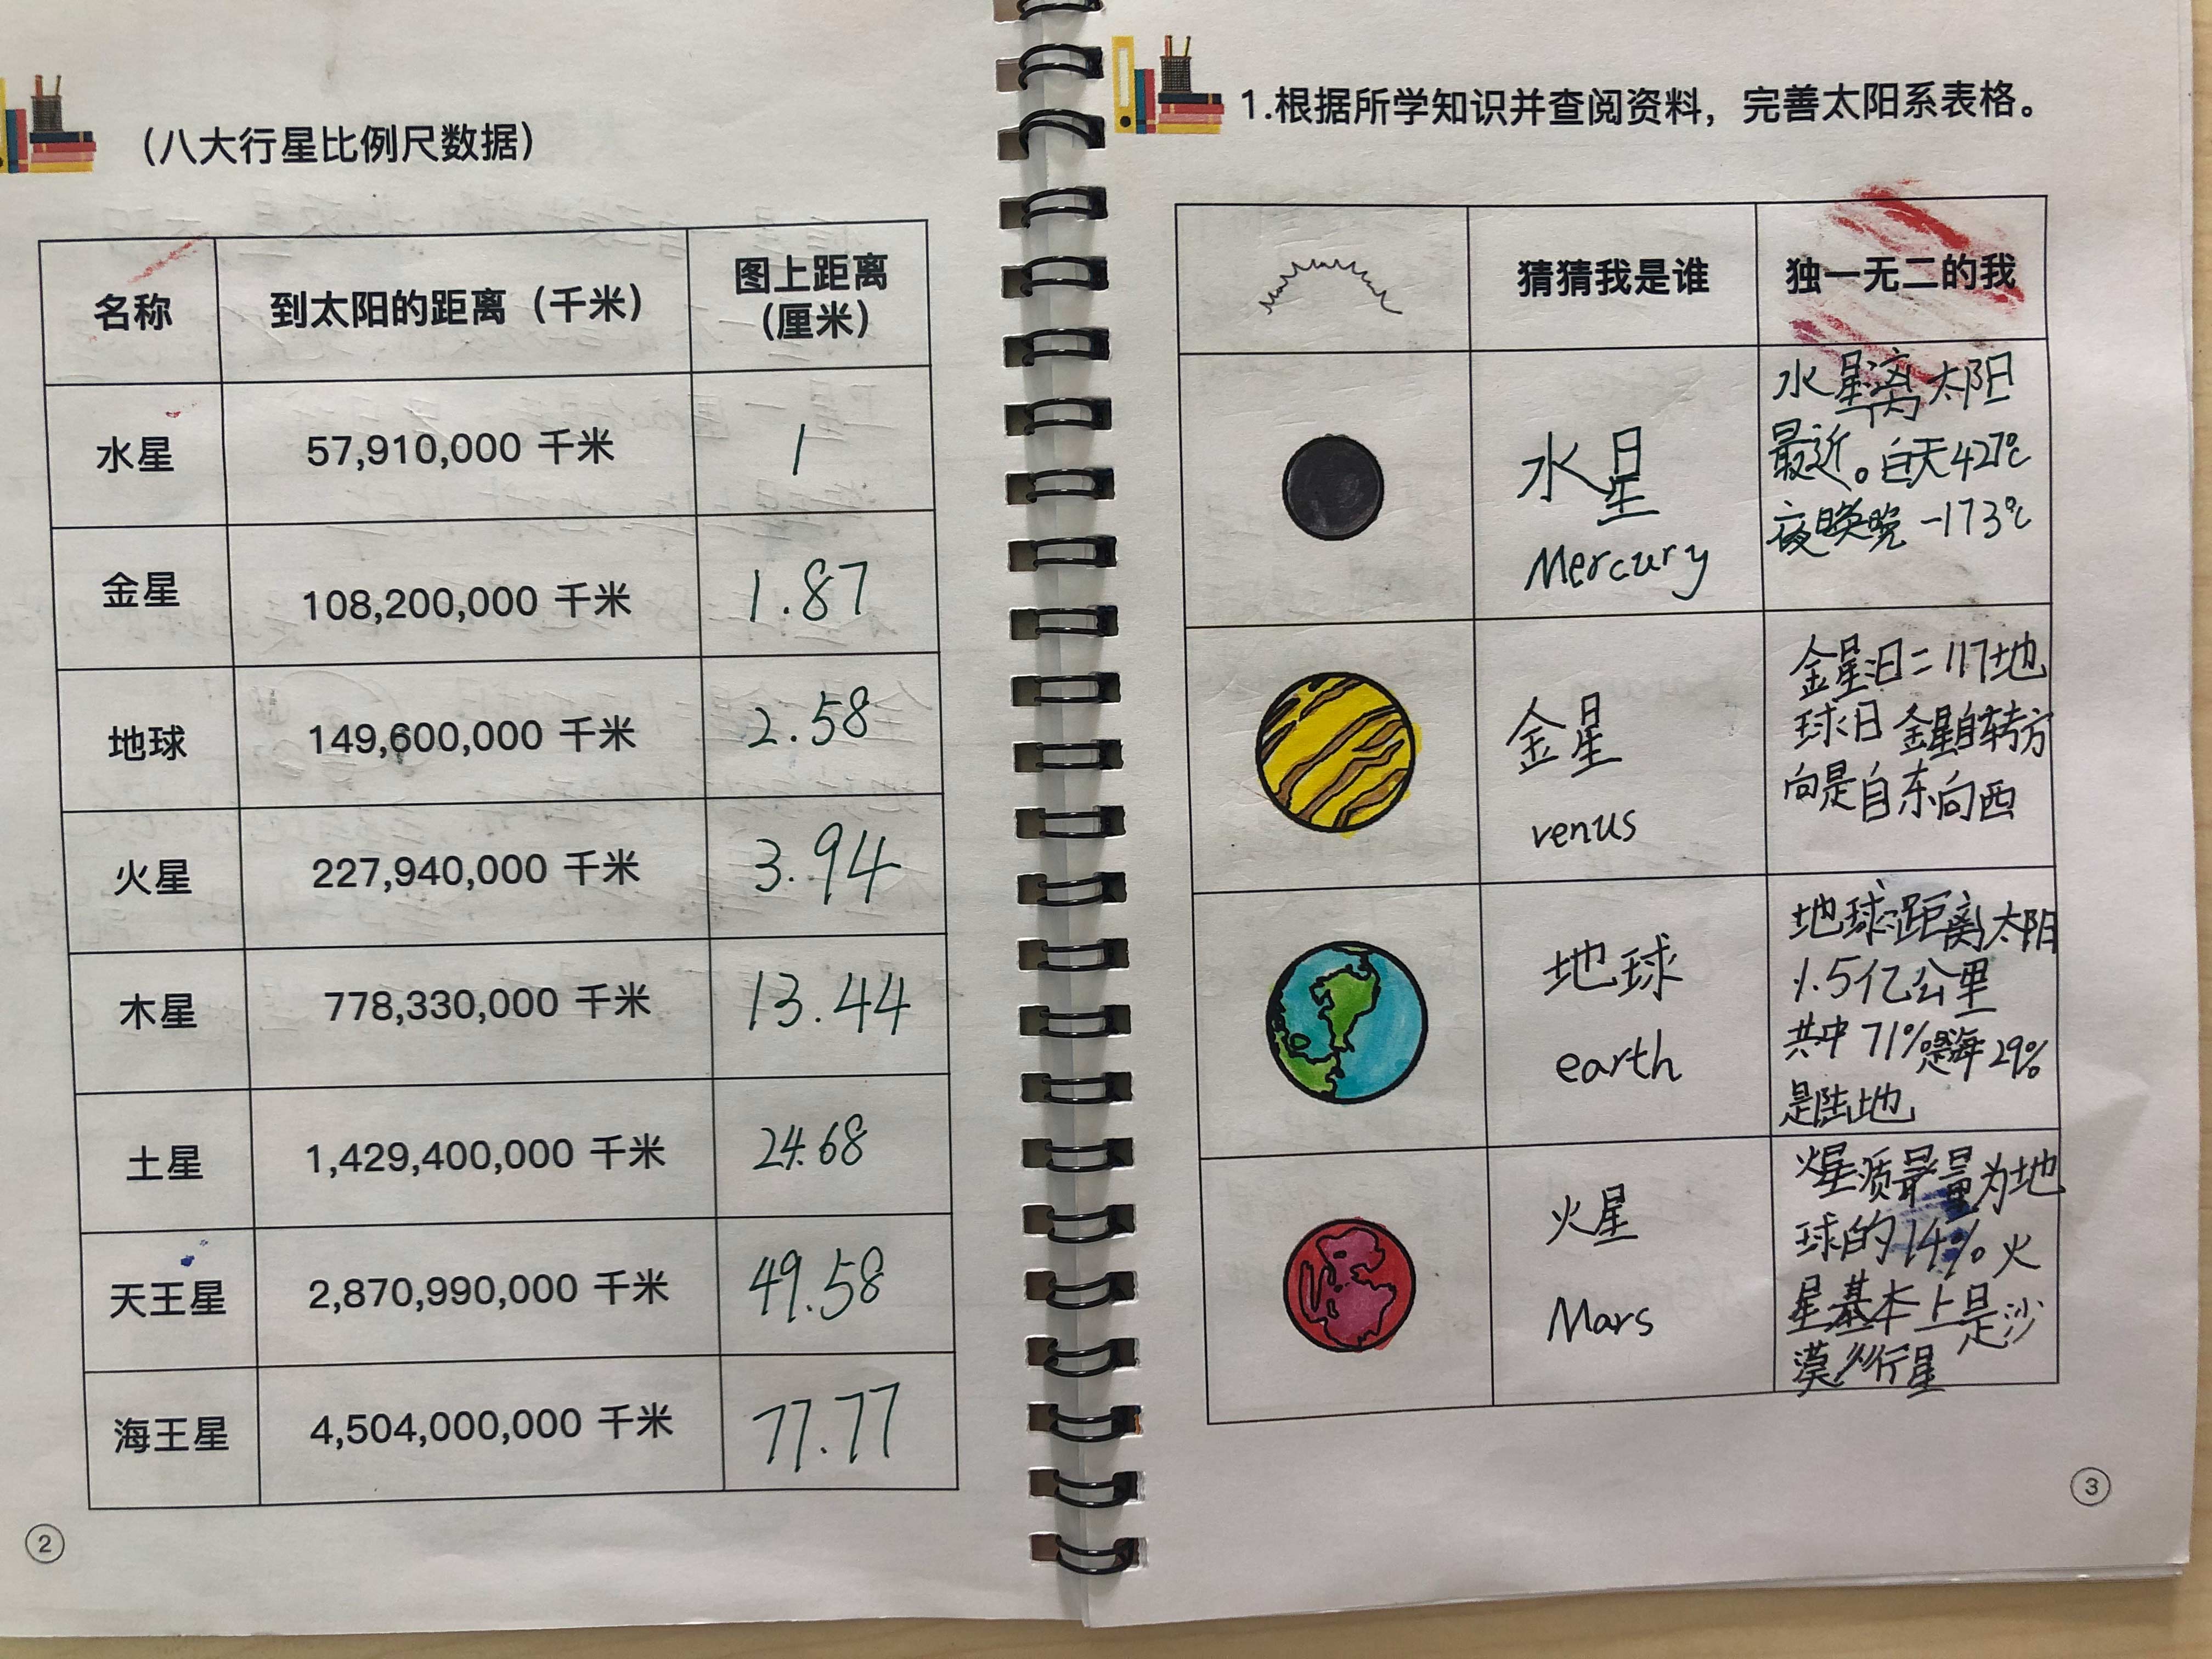 （八大行星比例尺数据）
名称 到太阳的距离（千米） 图上距离（厘米）
水星 57,910,000 千米 1
金星 108,200,000 千米 1.87
地球 149,600,000 千米 2.58
火星 227,940,000 千米 3.94
木星 778,330,000 千米 13.44
土星 1,429,400,000 千米 24.68
天王星 2,870,990,000 千米 49.58
海王星 4,504,000,000 千米 77.77
2
1.根据所学知识并查阅资料，完善太阳系表格。
猜猜我是谁 独一无二的我
水星
Mercury
水星离太阳
最近。白天427℃
夜晚 -173℃
金星
venus
金星日=117地
球日 金星自转方
向是自东向西
地球
earth
地球距离太阳
1.5亿公里
共中71%是海29%
是陆地
火星
Mars
火星质量为地
球的14%火
星基本上是沙
漠行星
3